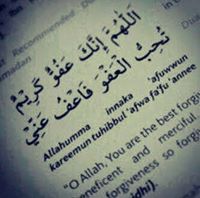 Recommended
madan
اَللّٰهُمَّ إِنَّكَ عَفُوٌّ كَرِيْمٌ
تُحِبُّ الْعَفْوَ فَاعْفُ عَنِّيْ
Allahumma innaka 'afuwwun
kareemun tuhibbul 'afwa fa'afu 'annee
"O Allah, You are the best forgi
eneficent and merciful
forgiveness so forg
dhi).